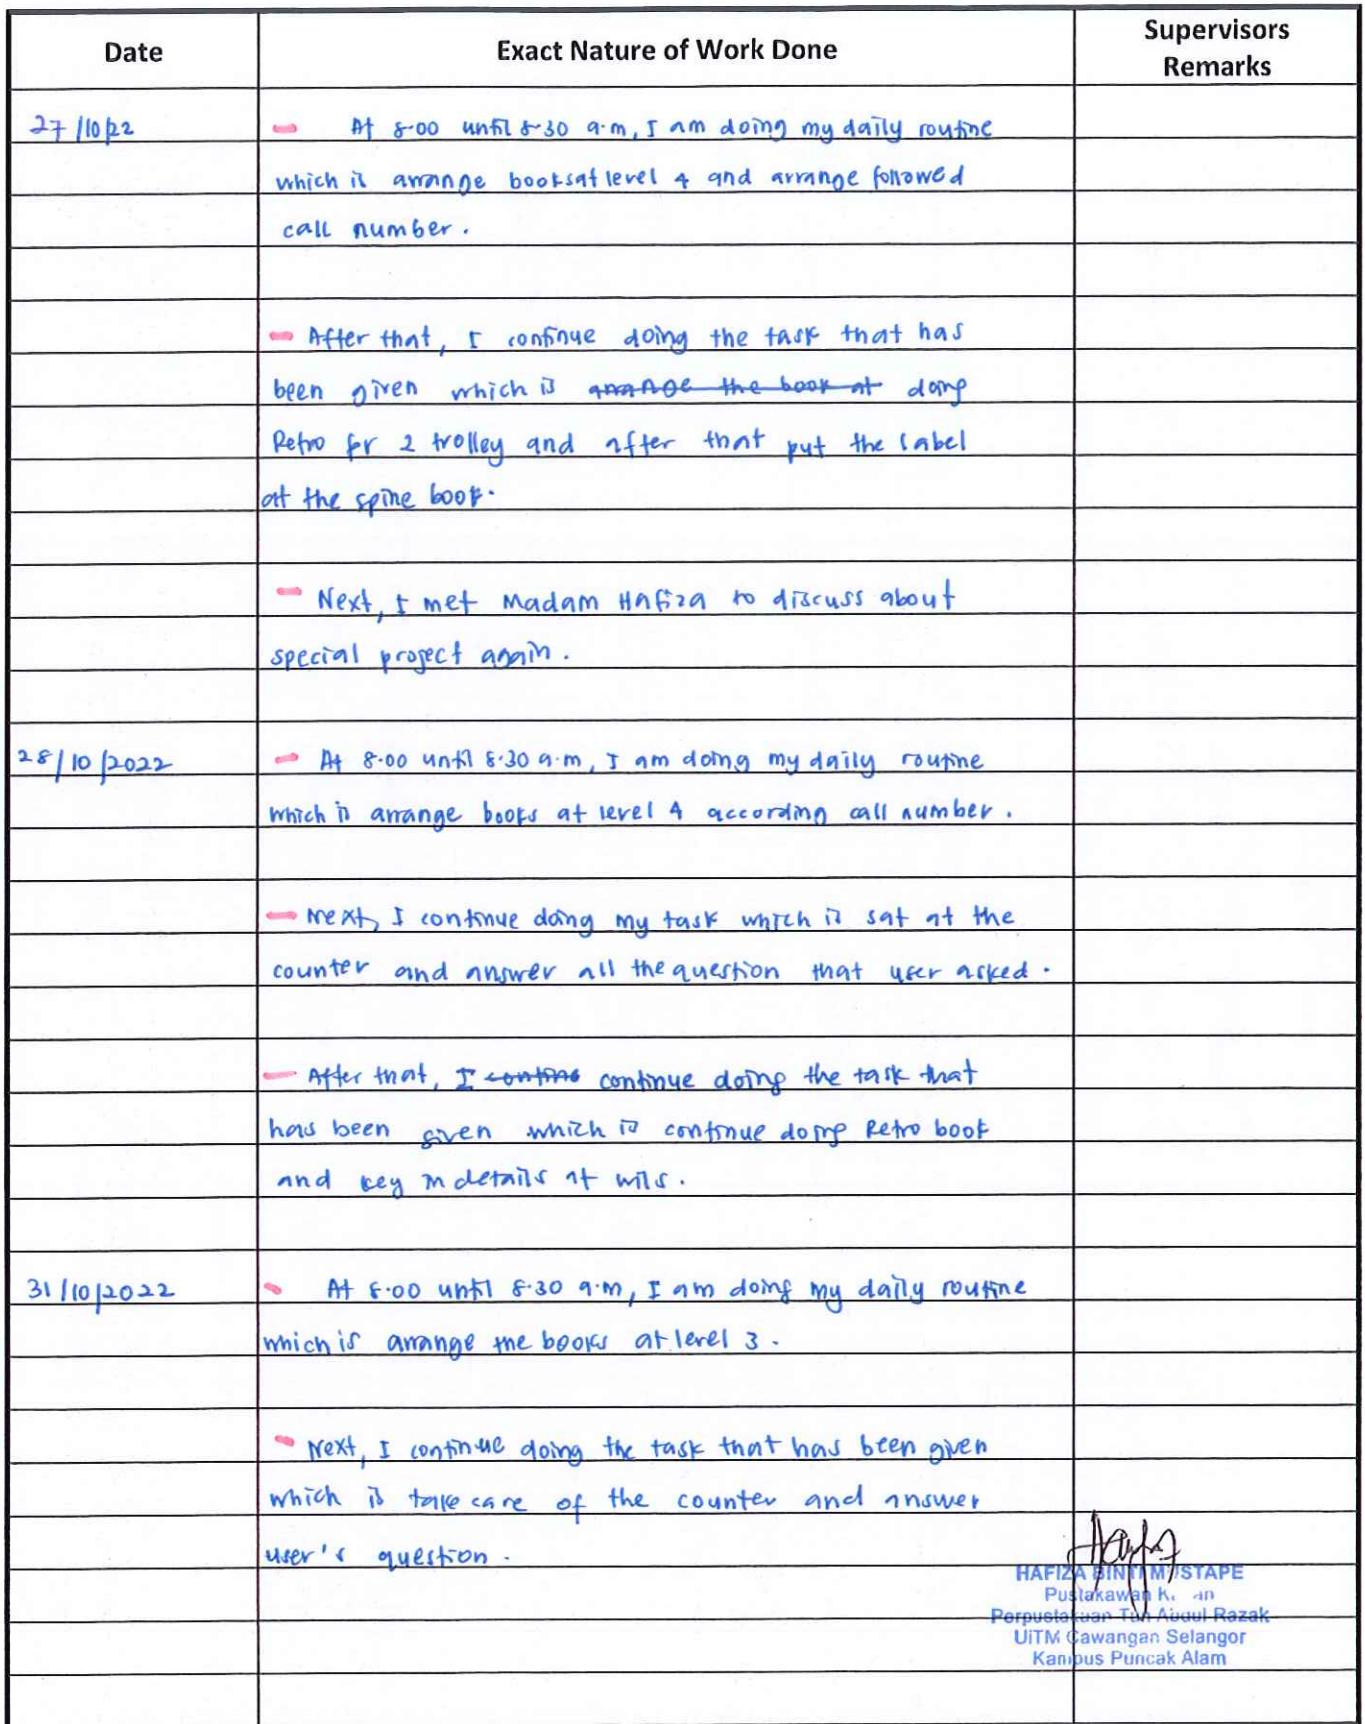 Date
Exact Nature of Work Done
Supervisors
Remarks
27/10/22
- At 8.00 until 8.30 a.m, I am doing my daily routine
which is arrange books at level 4 and arrange followed
call number.
- After that, I continue doing the task that has
been given which is arrange the book at doing
Retro for 2 trolley and after that put the label
at the spine book.
- Next, I met Madam Hafiza to discuss about
special project again.
28/10/2022
- At 8.00 until 8.30 a.m, I am doing my daily routine
which is arrange books at level 4 according call number.
- Next, I continue doing my task which is sat at the
counter and answer all the question that user asked.
- After that, I contine continue doing the task that
has been given which is continue doing Retro book
and key in details at wils.
31/10/2022
- At 8.00 until 8.30 a.m, I am doing my daily routine
which is arrange the books at level 3.
- Next, I continue doing the task that has been given
which is take care of the counter and answer
user's question.
HAFIZA BINTI MUSTAPE
Pustakawan
Perpustakaan Tun Abdul Razak
UiTM Cawangan Selangor
Kampus Puncak Alam